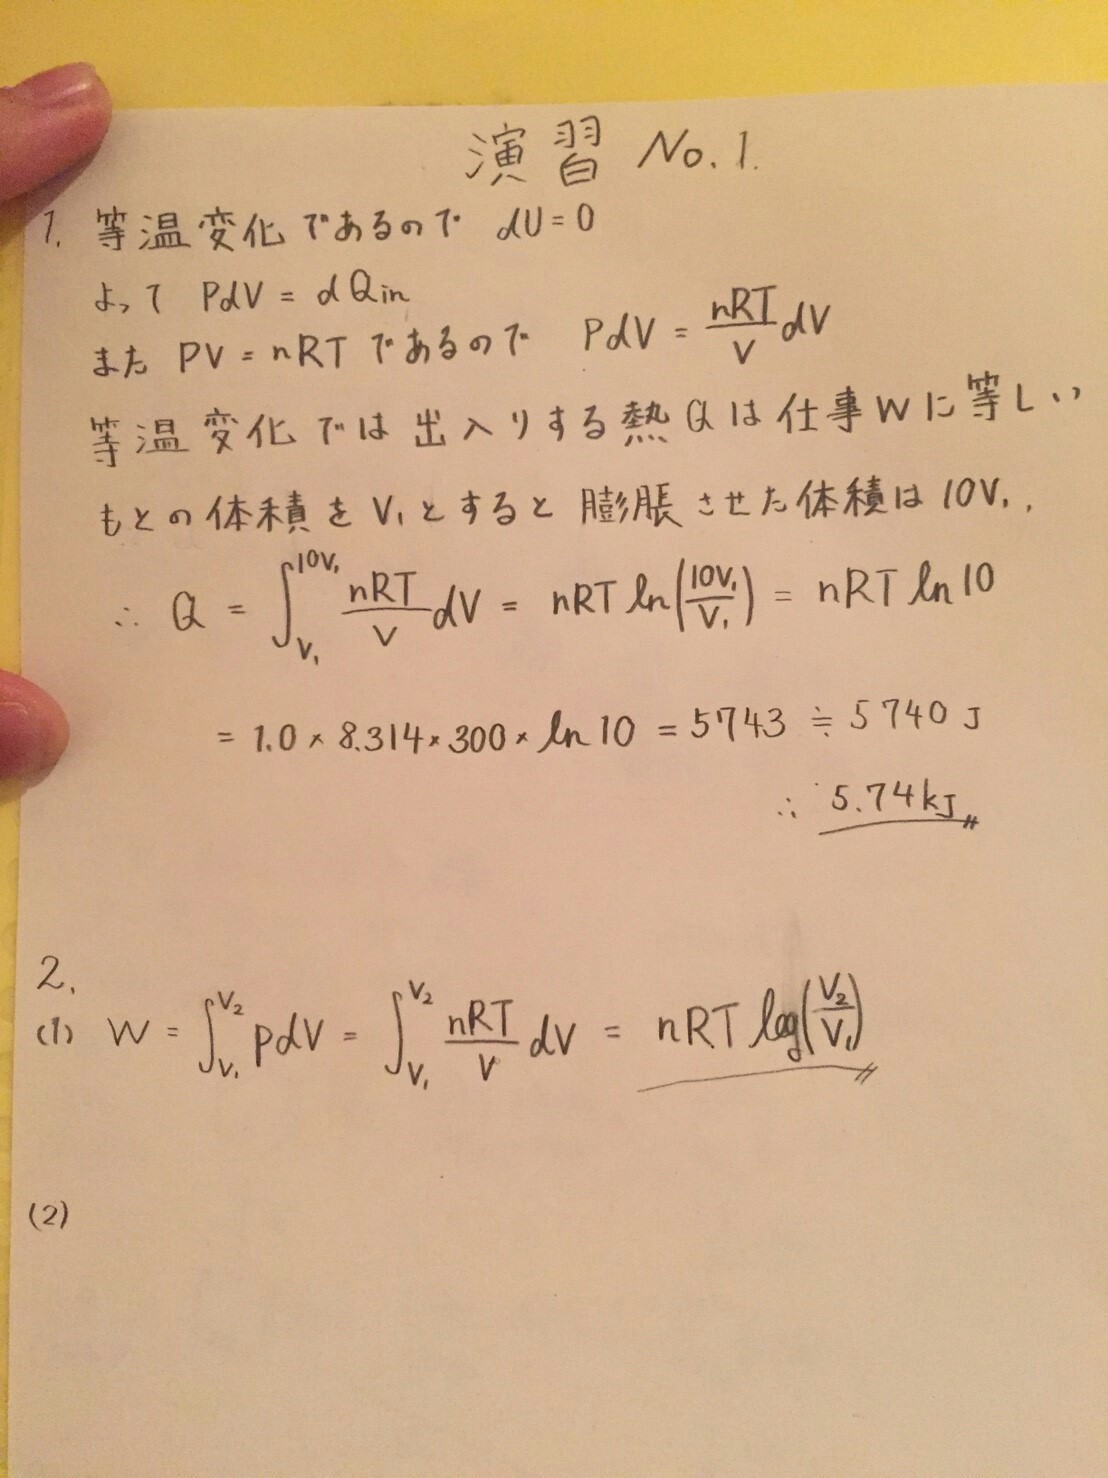 演習 No.1.
1. 等温変化であるので dU=0
よって PdV = dQin
また PV=nRTであるので PdV = nRT/V dV
等温変化では出入りする熱Qは仕事Wに等しい
もとの体積をV₁とすると膨脹させた体積は10V₁,
∴ Q = ∫_{V₁}^{10V₁} nRT/V dV = nRT ln(10V₁/V₁) = nRT ln10
= 1.0×8.314×300×ln10 = 5743 ≒ 5740 J
∴ 5.74kJ
2.
(1) W = ∫_{V₁}^{V₂} PdV = ∫_{V₁}^{V₂} nRT/V dV = nRT log(V₂/V₁)
(2)